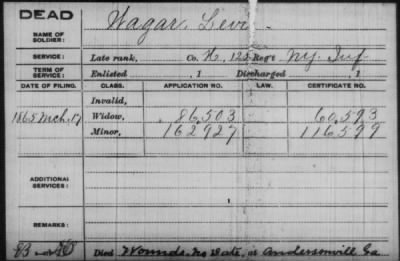 DEAD
NAME OF SOLDIER: Wagar, Levi
SERVICE: Late rank, Co. H, 125 Reg't N.Y. Inf
TERM OF SERVICE: Enlisted , 1 Discharged , 1
DATE OF FILING. CLASS. APPLICATION NO. LAW. CERTIFICATE NO.
Invalid,
1865 Mch. 17 Widow, 86,503 60,593
Minor, 162927 116599
ADDITIONAL SERVICES:
REMARKS:
Died Wounds. No Date, at Andersonvill Ga